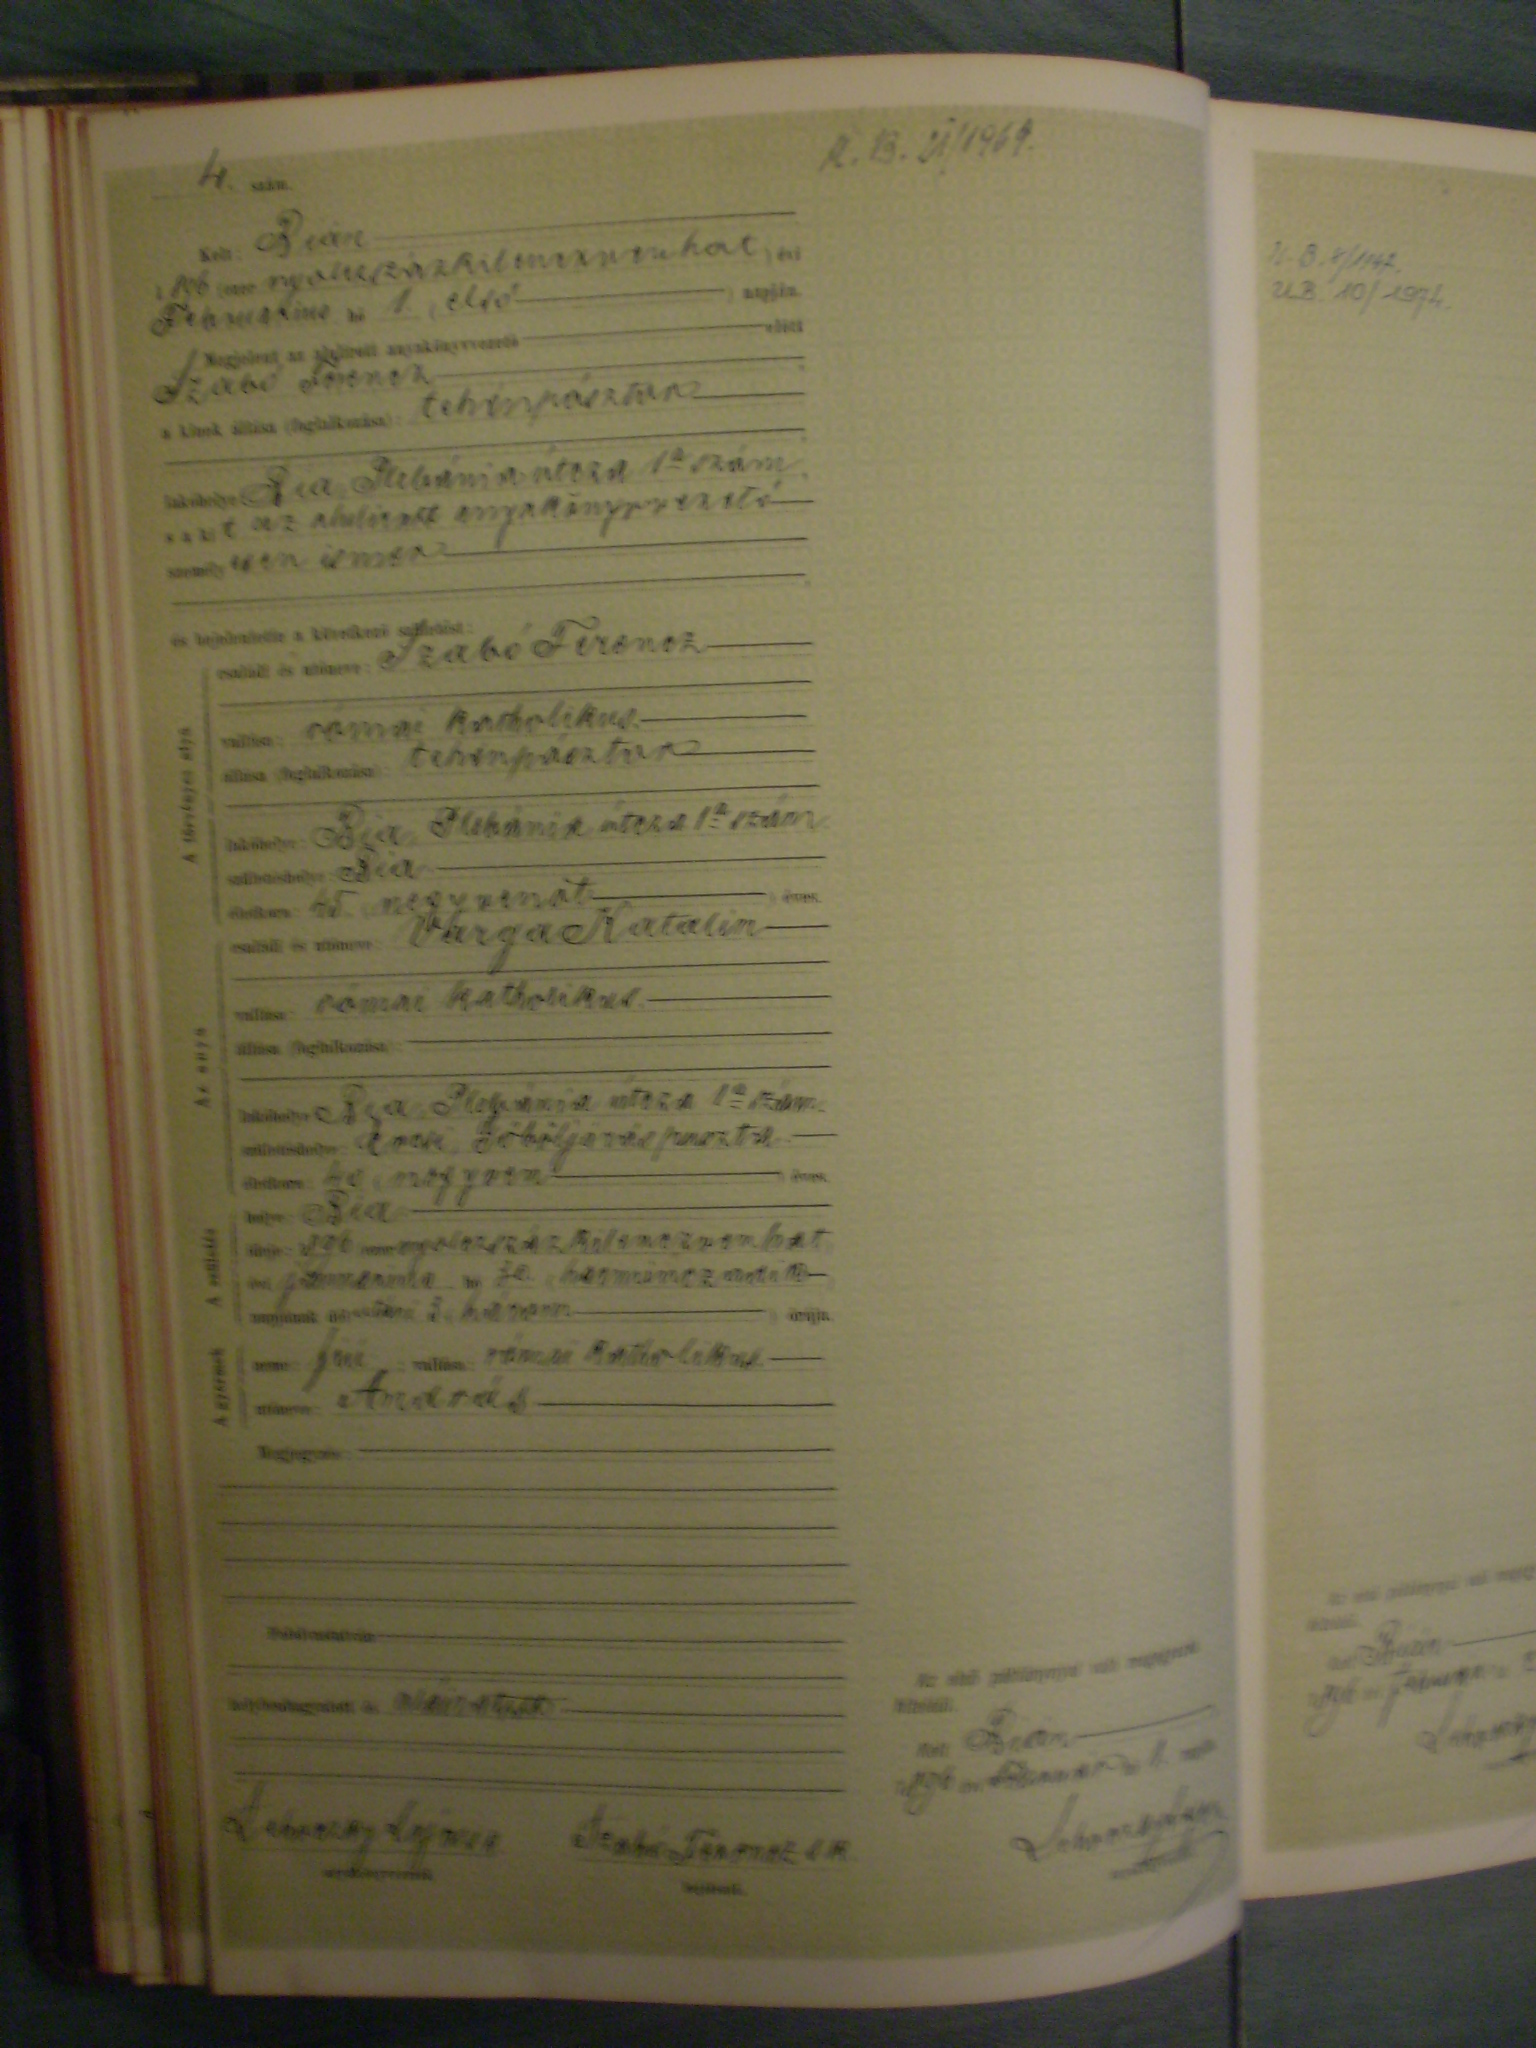 4. szám.
Kelt: Bián
1896 (ezer nyolczszázkilenczvenhat) évi
Februárius hó 1. (első) napján.
Megjelent az alulirott anyakönyvvezető előtt
Szabó Ferencz
a kinek állása (foglalkozása): tehénpásztor
lakóhelye: Bia, Plebánia útcza 1ª szám
s a kit az alulirott anyakönyvvezető
személyesen ismer
és bejelentette a következő születést:
A törvényes atya
családi és utóneve: Szabó Ferencz
vallása: római katholikus
állása (foglalkozása): tehénpásztor
lakóhelye: Bia, Plebánia útcza 1ª szám
születéshelye: Bia
életkora: 45 (negyvenöt) éves.
Az anya
családi és utóneve: Varga Katalin
vallása: római katholikus
állása (foglalkozása):
lakóhelye: Bia, Plebánia útcza 1ª szám
születéshelye:
életkora: 40 (negyven) éves.
A születés
helye: Bia
ideje: 1896 (ezer nyolczszázkilenczvenhat)
évi Januárius hó 30. (harminczadik)
napjának délutáni 3 (három) órája.
A gyermek
neme: fiú; vallása: római katholikus
utóneve: András
Megjegyzés:
Felolvastatván,
helybenhagyatott és aláíratott
Szabó Ferencz s. k.
anyakönyvvezető.
bejelentő.
/1964.
Az első példánynyal való megegyezését
hitelesiti.
Kelt: Bián
1896 évi Februárius hó 1. napján
anyakönyvvezető.
/1947.
U.B. 10/1974.
Az első példánynyal való
hitelesiti.
Kelt: Bián
1896 évi